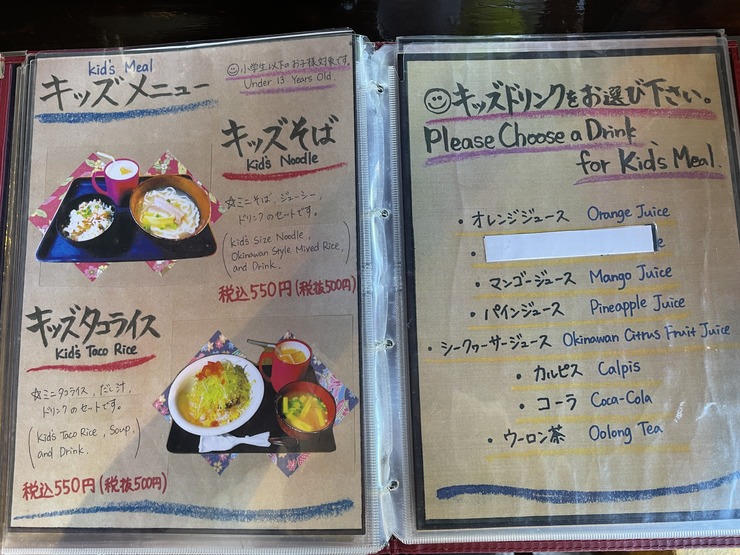 Kid's Meal
キッズメニュー
小学生以下のお子様対象です。
Under 13 Years Old.
キッズそば
Kid's Noodle
☆ミニそば、ジューシー、
ドリンクのセートです。
(Kid's Size Noodle,
Okinawan Style Mixed Rice,
and Drink.)
税込550円(税抜500円)
キッズタコライス
Kid's Taco Rice
☆ミニタコライス、だし汁、
ドリンクのセートです。
(Kid's Taco Rice, Soup,
and Drink.)
税込550円(税抜500円)
キッズドリンクをお選び下さい。
Please Choose a Drink
for Kid's Meal.
・オレンジジュース Orange Juice
・マンゴージュース Mango Juice
・パインジュース Pineapple Juice
・シークヮーサージュース Okinawan Citrus Fruit Juice
・カルピス Calpis
・コーラ Coca-Cola
・ウーロン茶 Oolong Tea